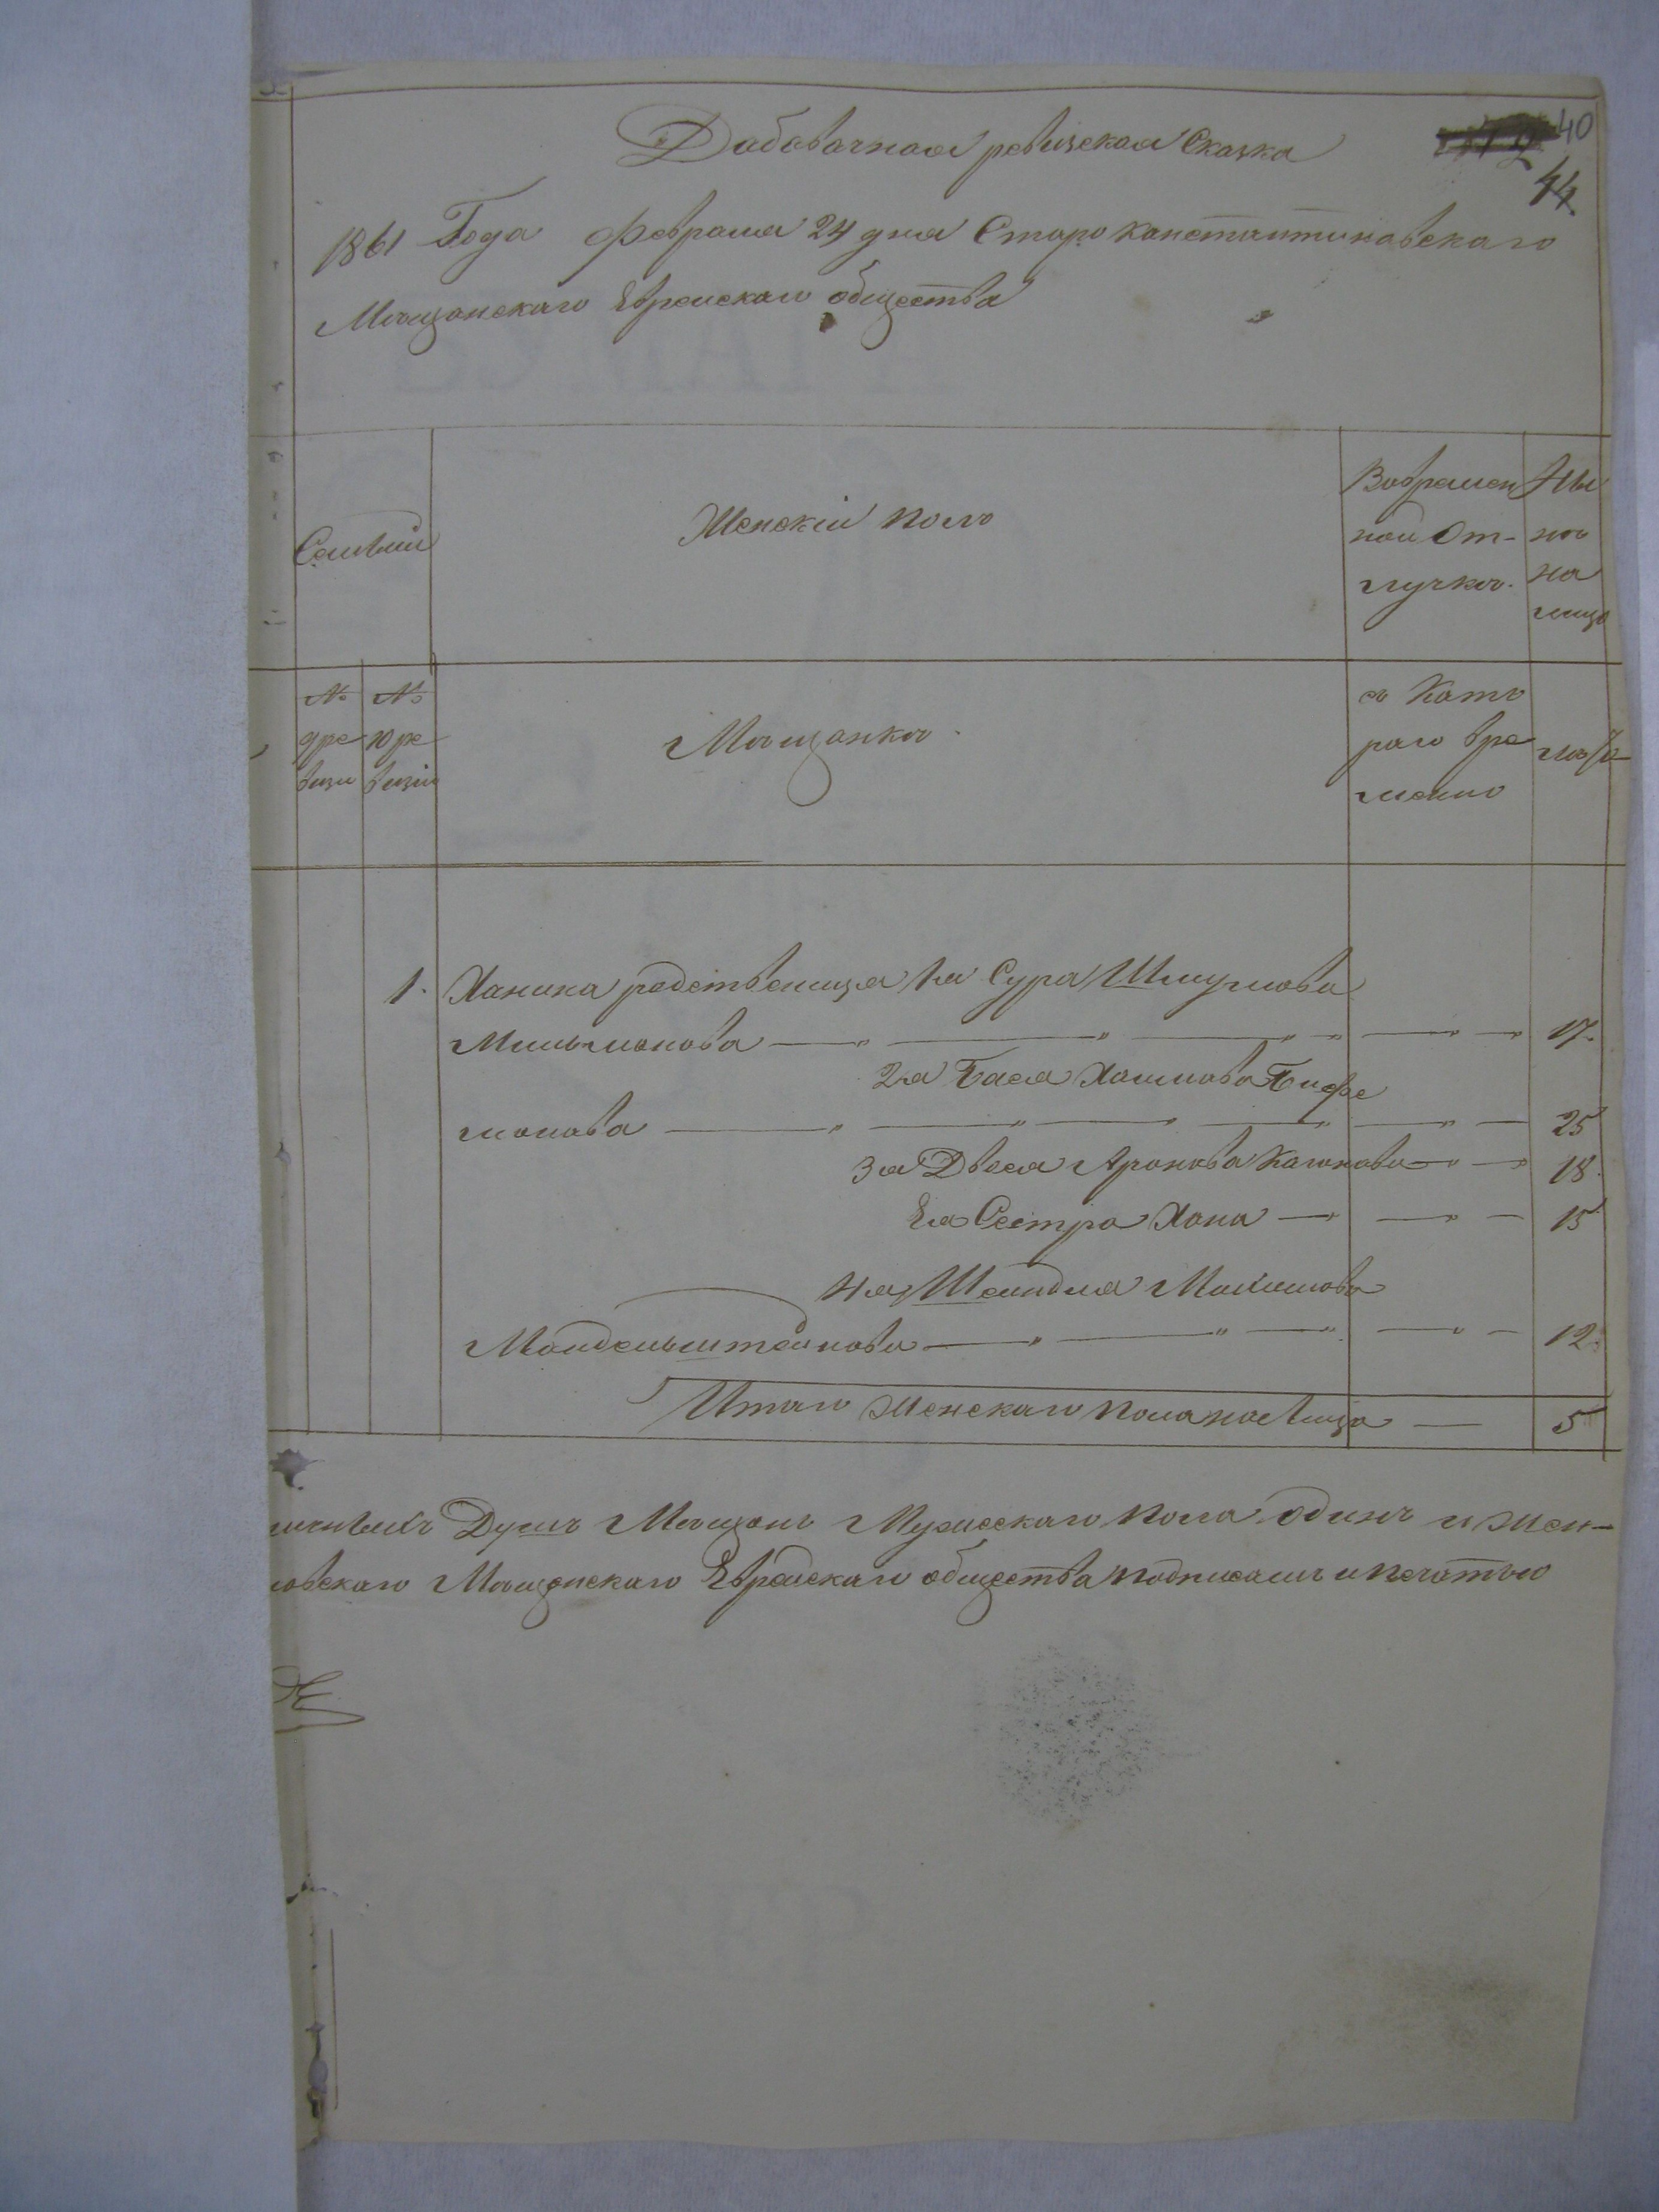 40
44
Дабавочная ревизская Сказка
1861 Года февраля 24 дня Старо константиновскаго
Мѣщанскаго Еврейскаго общества
Семьии
Женскій полъ
Вовремен
ной От-
лучкѣ.
Ны
нѣ
на
лицо
№
9 ре
визи
№
10 ре
визіи
Мѣщанки.
съ Като
раго вре
мени
лѣта
1. Ханина родственица 1я Сура Шмулиова
Мильмонова 17.
2я Бася Хаимова
монова 25
3я Двося Аронова Кагонова 18.
Ея Сестра Хана 15
4я Шеиндля
Мандельштейнова 12.
Итаго женскаго пола налицо 5
Душъ Мѣщанъ Мужескаго пола одинъ и жен-
овскаго Мѣщанскаго Еврейскаго общества подписалъ и печатью